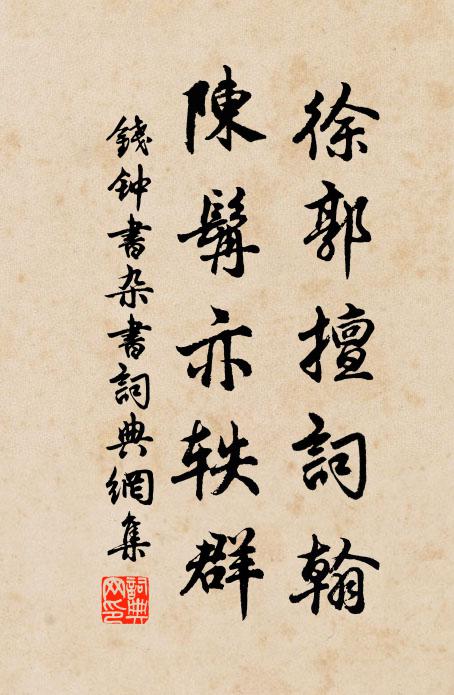 徐郭擅詞翰
陳髯亦轶群
錢钟書杂書詞典網集
詞典網印